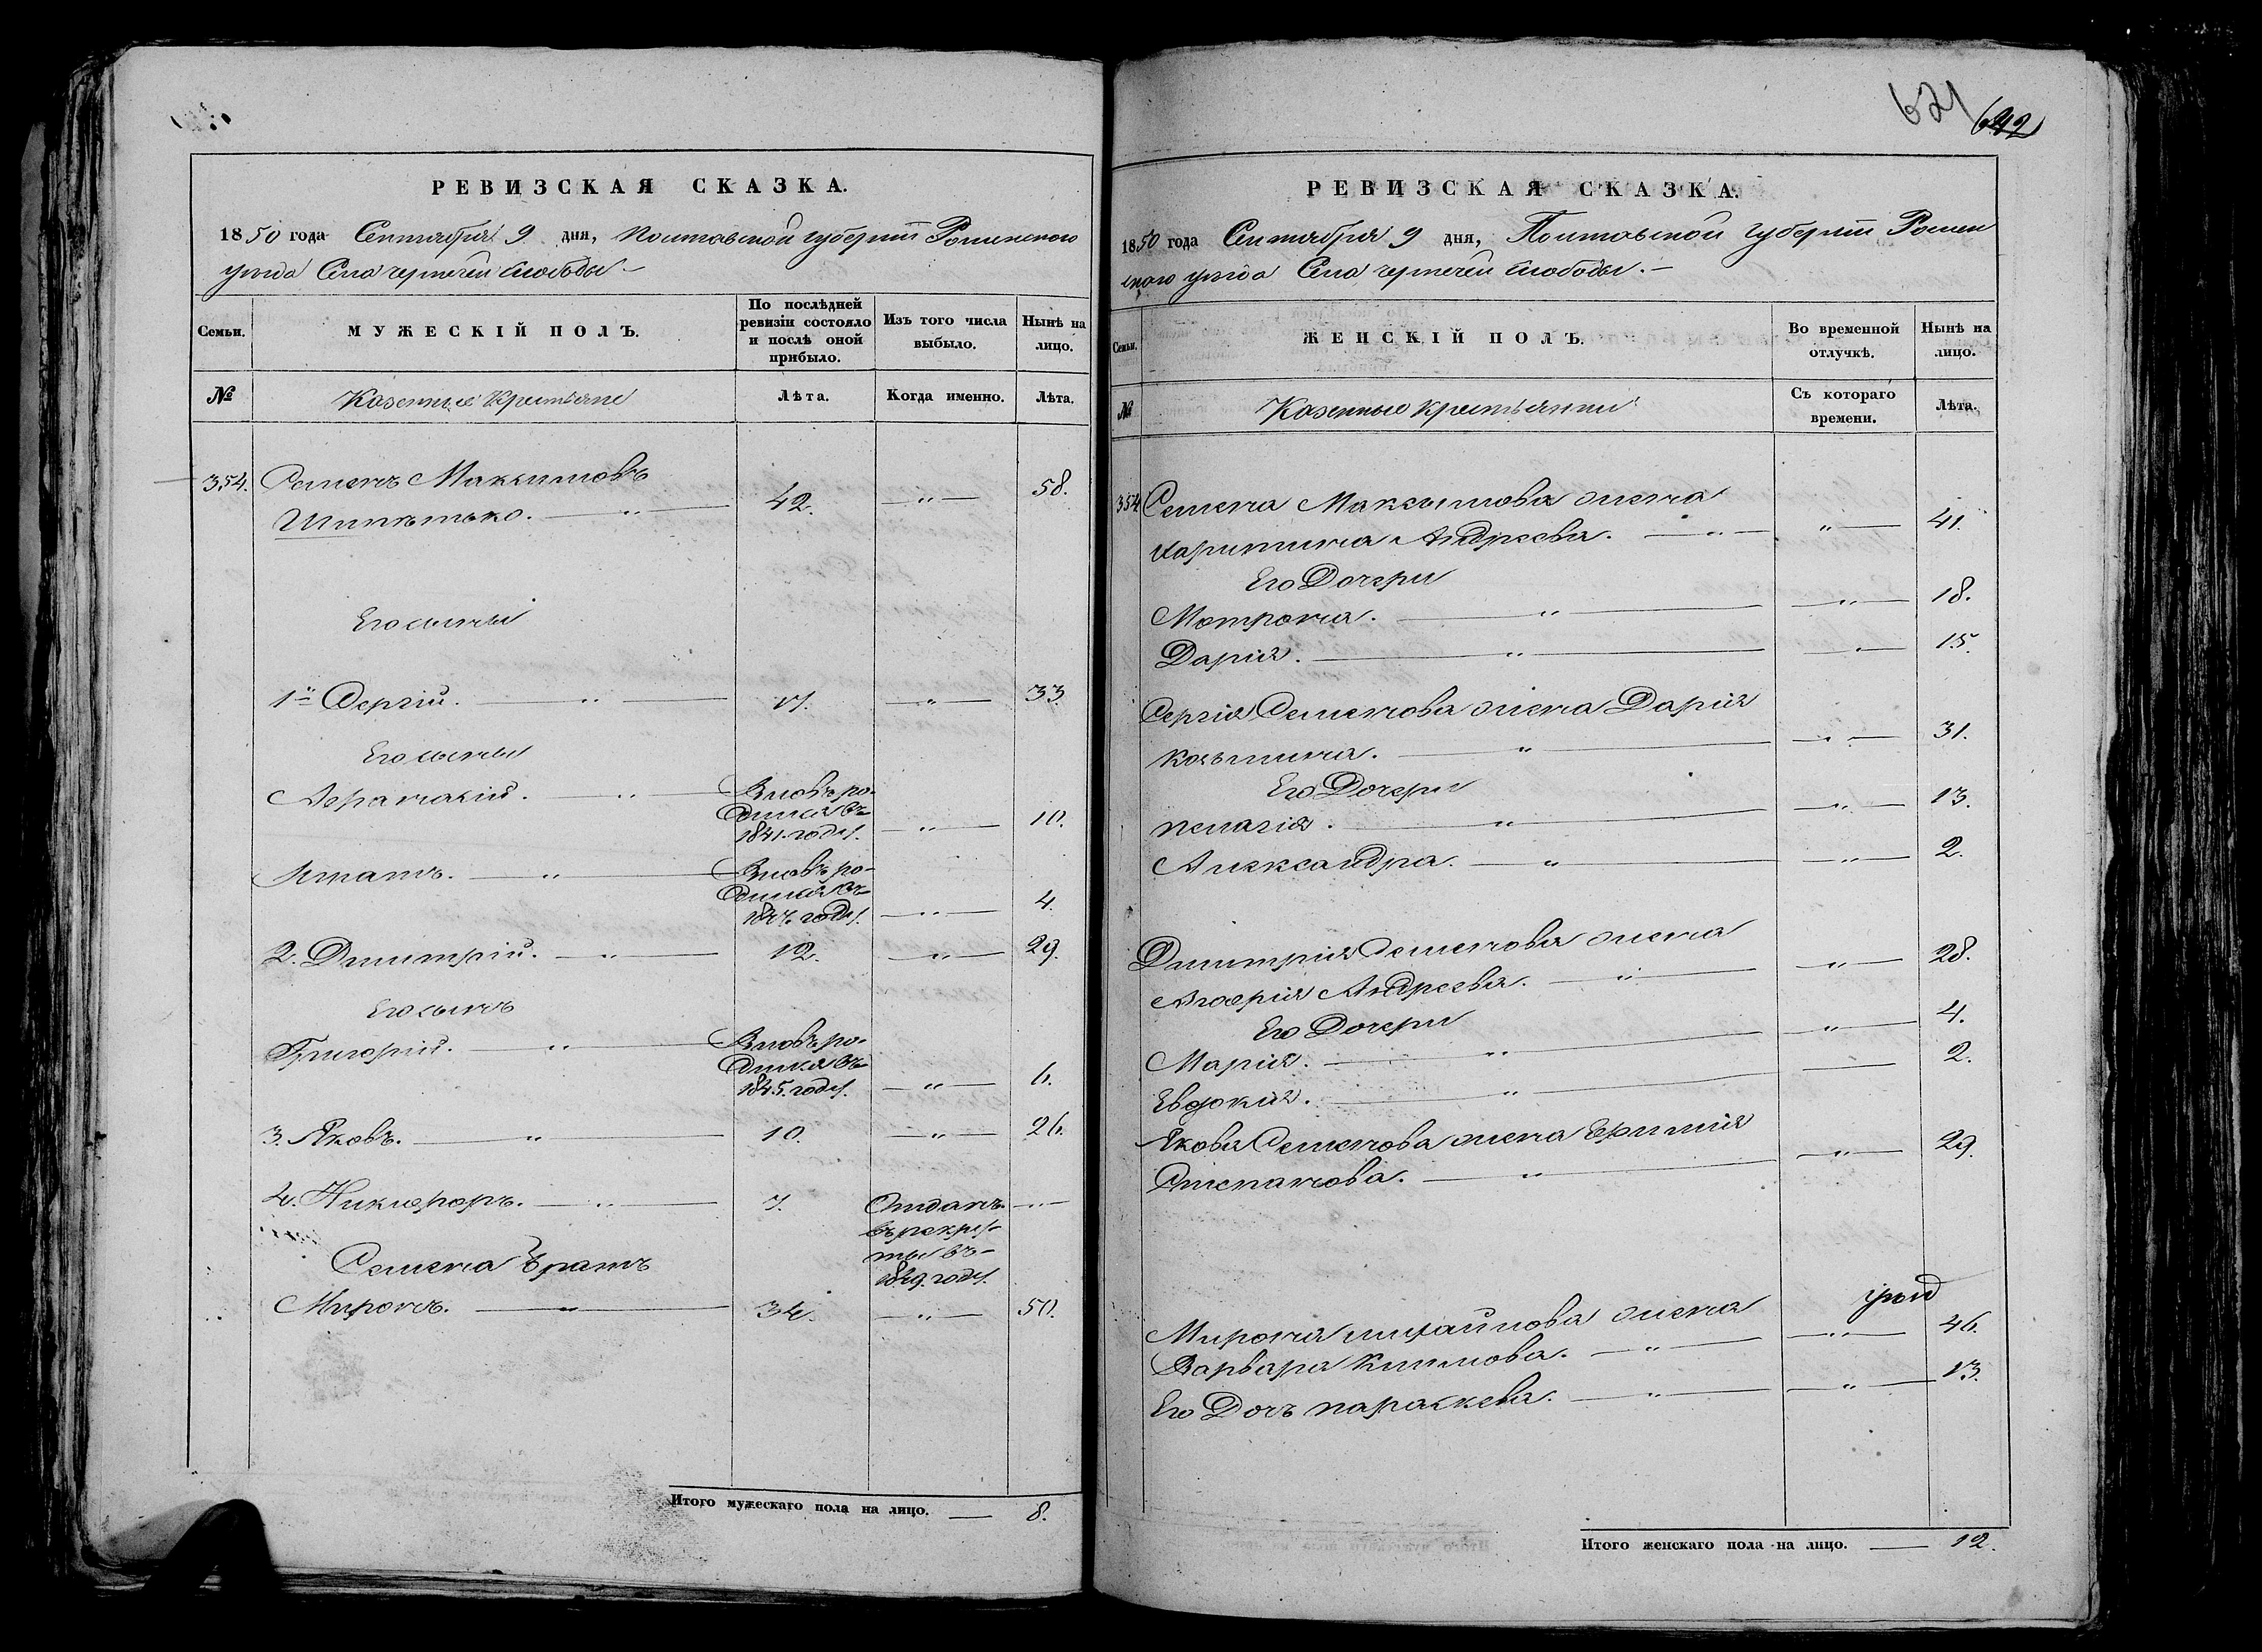 РЕВИЗСКАЯ СКАЗКА.
1850 года Сентября 9 дня, Полтавской губерніи Роменского
уезда Села чернечей слободы
Семьи.
МУЖЕСКІЙ ПОЛЪ.
По послѣдней
ревизіи состояло
и послѣ оной
прибыло.
Изъ того числа
выбыло.
Нынѣ на
лицо.
№
Казенные Крестьяне
Лѣта.
Когда именно.
Лѣта.
354. Семенъ Максимовъ
42. — „ — 58.
Его сыны
1й Сергій. — „ — 17. — „ — 33.
Его сыны
Афанасій. — „ — Вновь ро-
дился въ
1841. году. — „ — 10.
Игнатъ. — „ — Вновь ро-
дился въ
1847. году. — „ — 4.
2. Дмитрій. — „ — 12. — „ — 29.
Его сынъ
Григорій. — „ — Вновь ро-
дился въ
1845. году. — „ — 6.
3. Яковъ. — „ — 10. — „ — 26.
4. Никифоръ. — „ — 7. Отданъ — „ —
въ рекру-
ты въ
1849. году.
Семена братъ
Миронъ. — „ — 34. — „ — 50.
Итого мужескаго пола на лицо. — 8.
621
642
РЕВИЗСКАЯ СКАЗКА.
1850 года Сентября 9 дня, Полтавской губерніи Ромен
ского уезда Села чернечей слободы. —
Семьи.
ЖЕНСКІЙ ПОЛЪ.
Во временной
отлучкѣ.
Нынѣ на
лицо.
№
Казенные крестьянки
Съ котораго
времени.
Лѣта.
354 Семена Максимова жена
Харитина Андреева. — „ — „ — 41.
Его Дочери
Мотрона. — „ — „ — 18.
Дарія. — „ — „ — 15.
Сергія Семенова жена Дарія
Козьмина. — „ — „ — 31.
Его Дочери
пелагія. — „ — „ — 13.
Александра. — „ — „ — 2.
Дмитрія Семенова жена
Агафія Андреева. — „ — „ — 28.
Его Дочери
Марія. — „ — „ — 4.
Евдокія. — „ — 2.
Якова Семенова жена
Степанова. — „ — „ — 29.
Мирона жена
Варвара Климова. — „ — „ — 46.
Его Дочь параскева. — „ — „ — 13.
Итого женскаго пола на лицо. — 12.